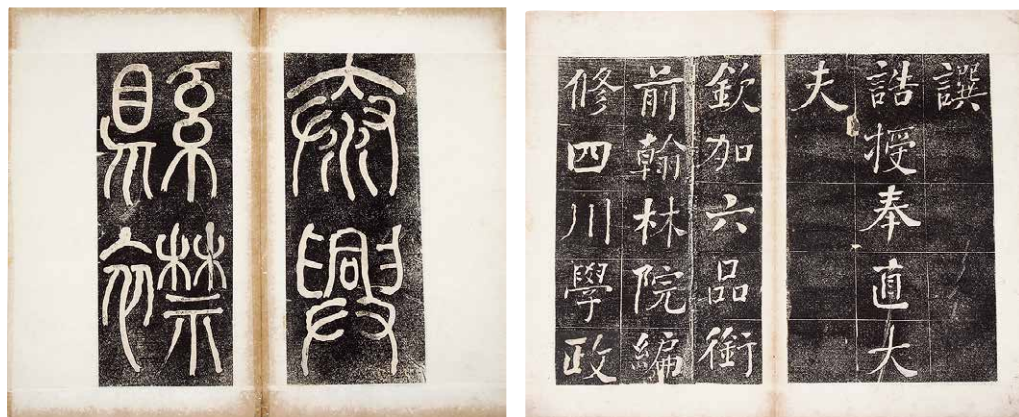 泰興
縣襟
譔
誥授奉直大
夫
欽加六品銜
前翰林院編
修四川學政